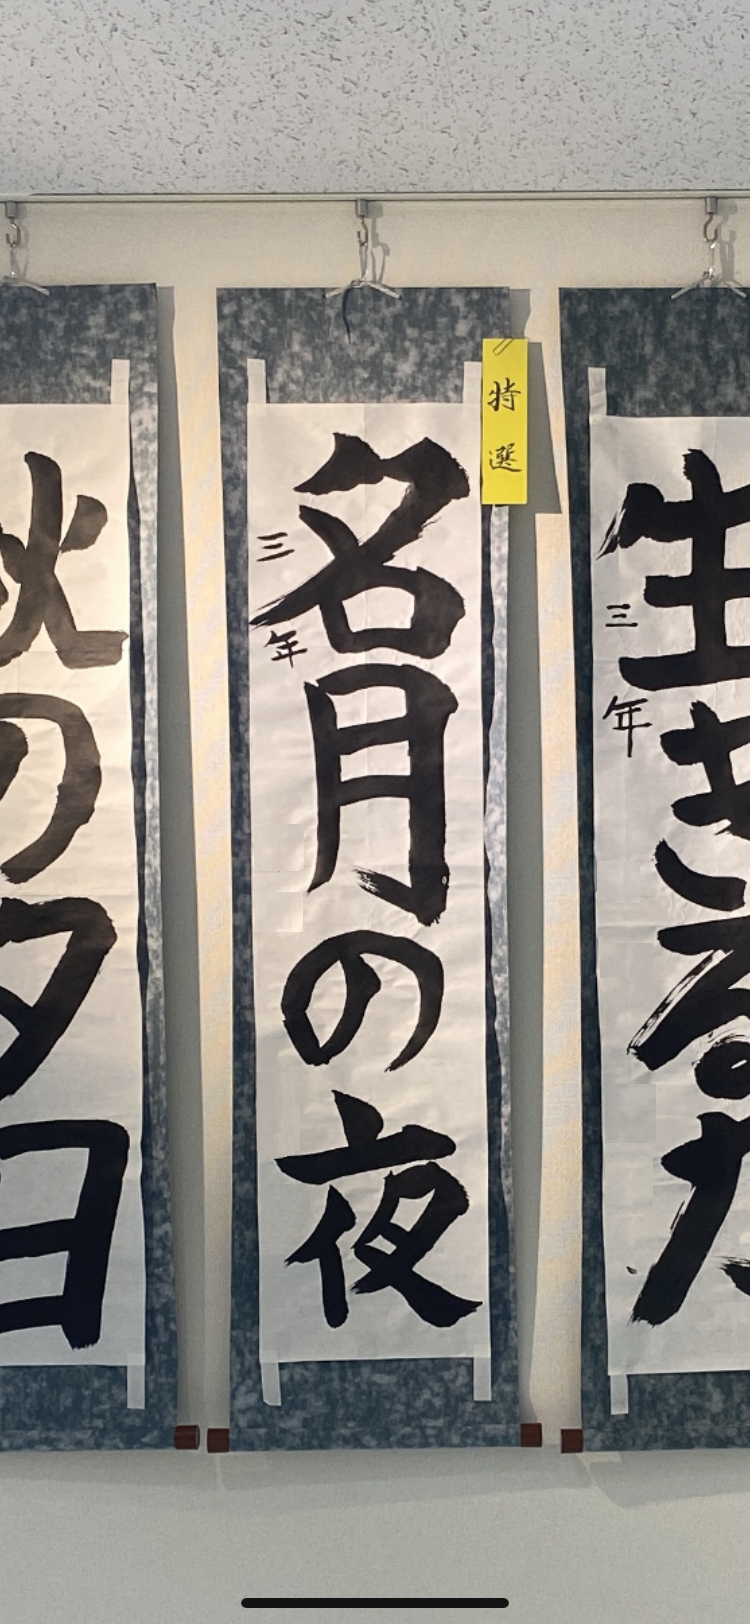 特選
名月の夜
三年
生きる力
三年
秋の夕日